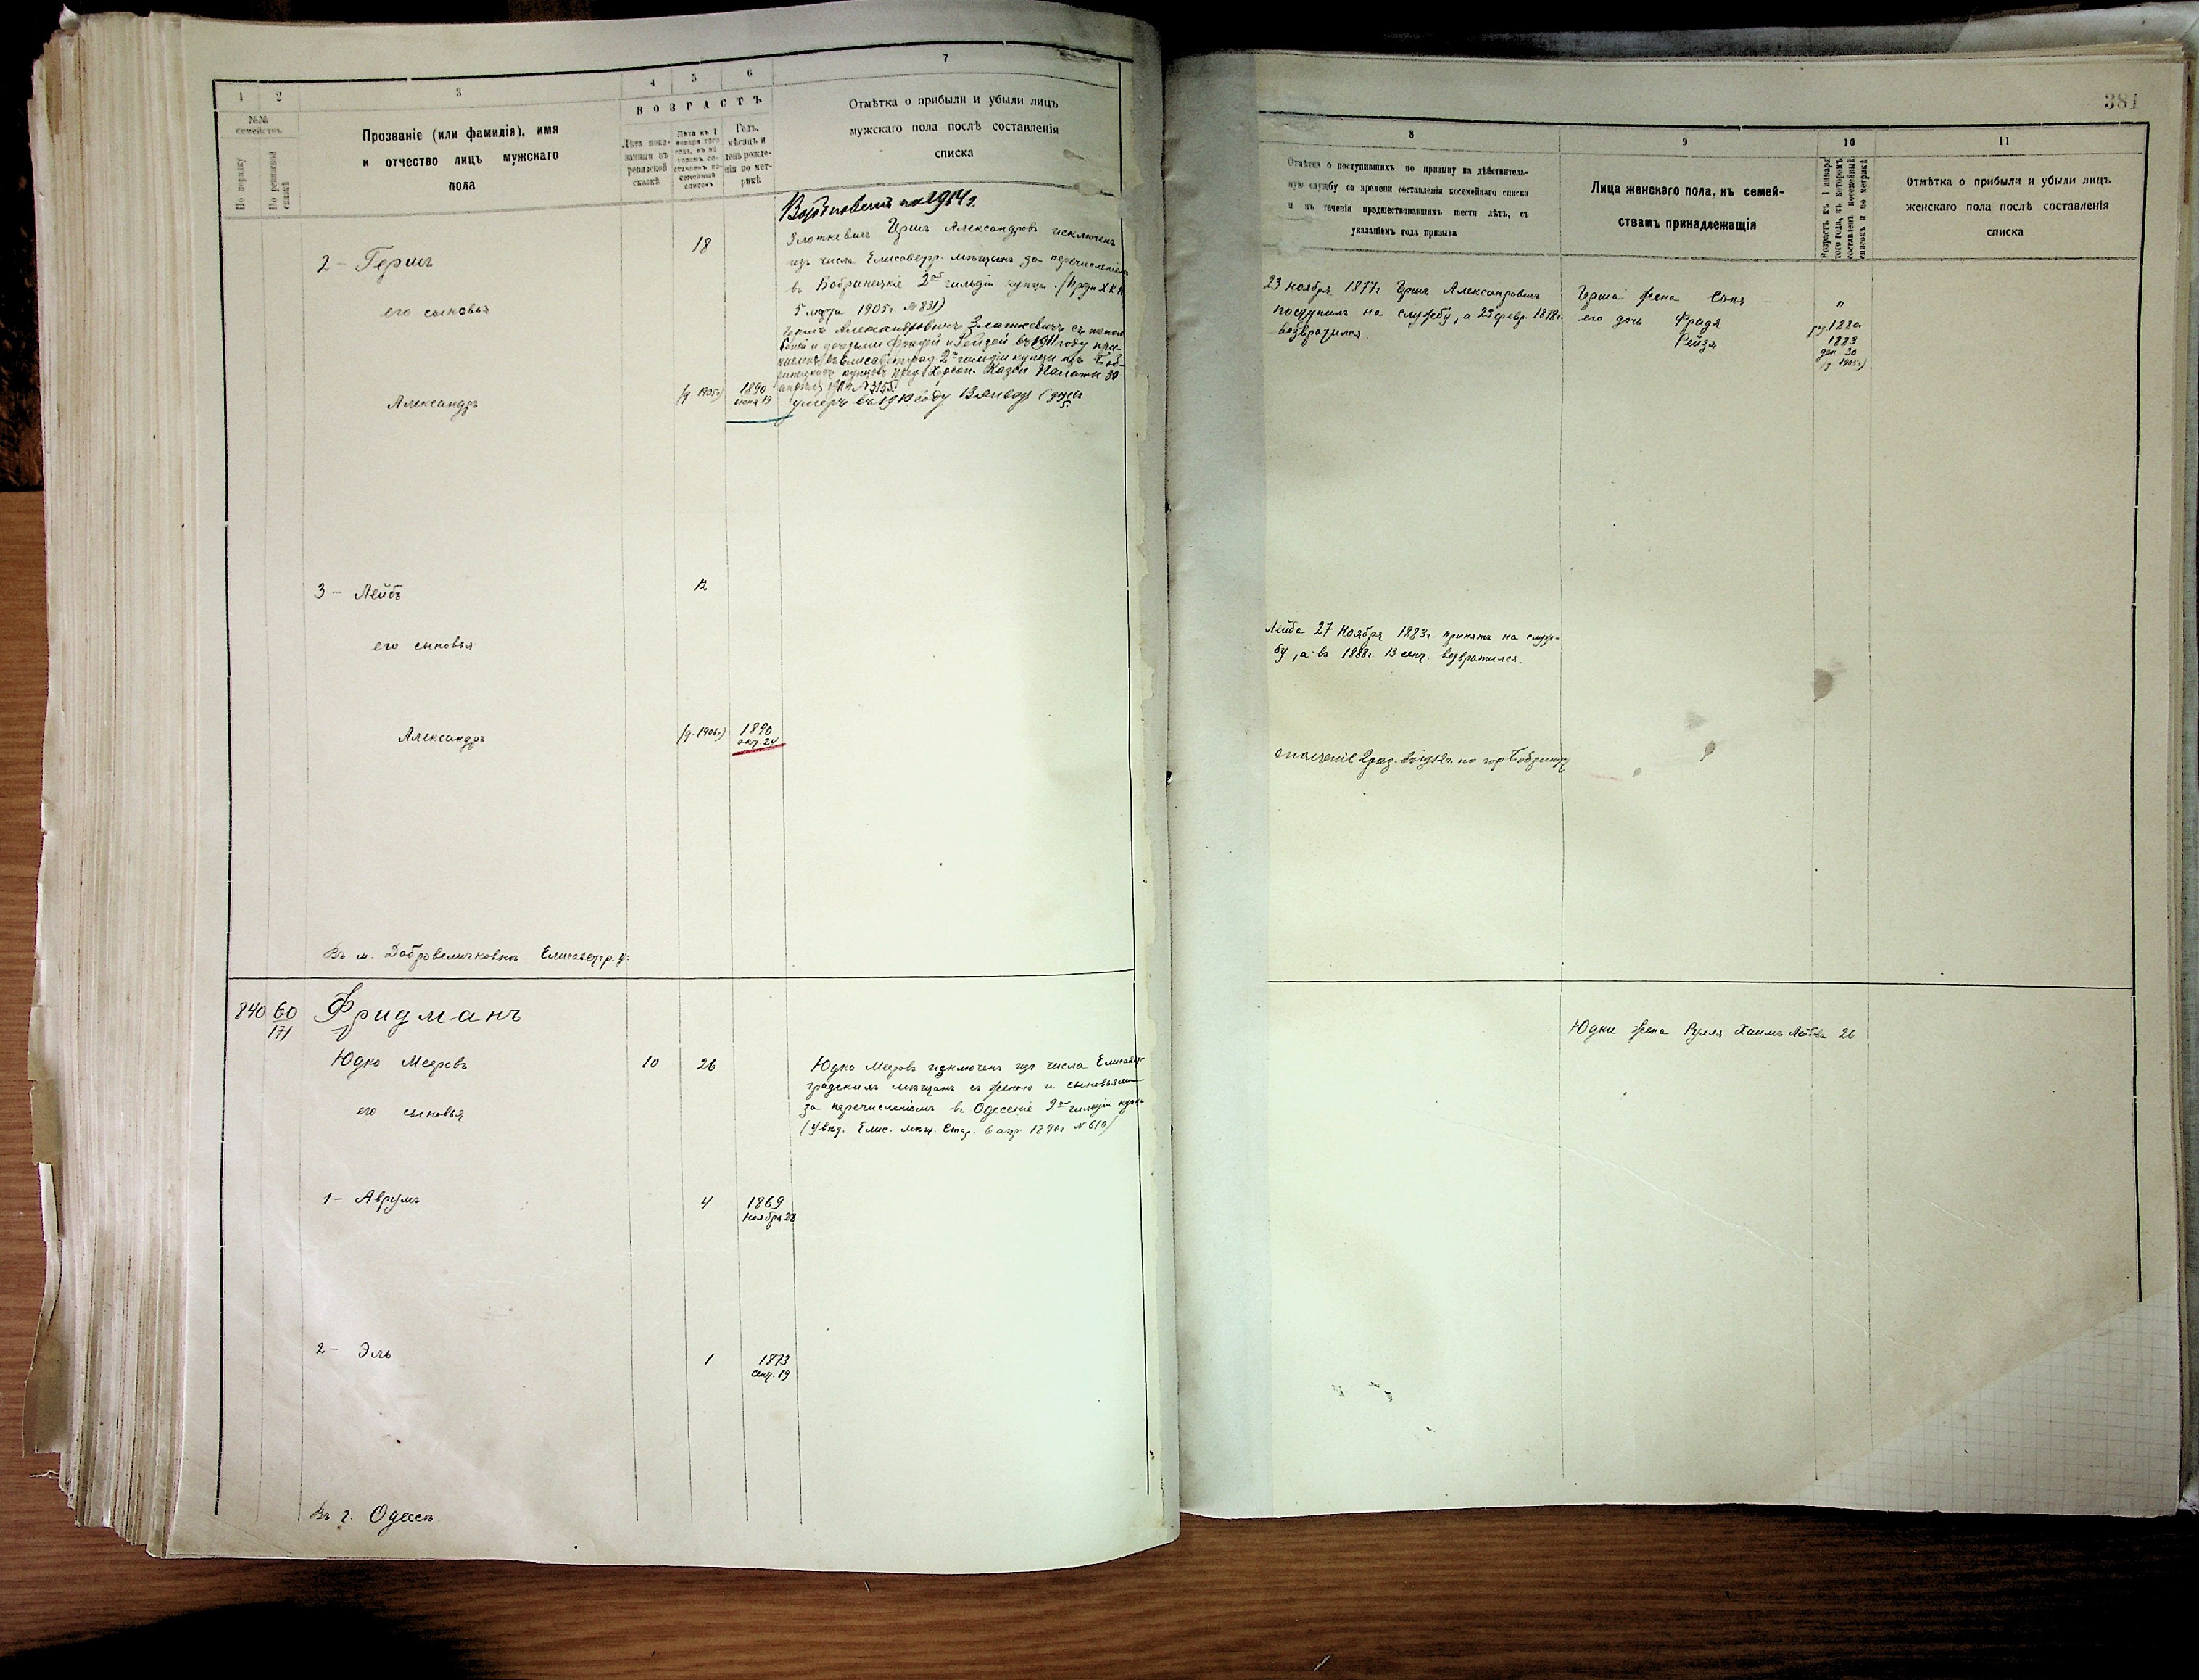 1
2
3
4
5
6
7
№№ семействъ
По порядку
По ревизской сказкѣ
Прозваніе (или фамилія), имя
и отчество лицъ мужскаго
пола
ВОЗРАСТЪ
Лѣта пока-
занныя въ
ревизской
сказкѣ
Лѣта къ 1
января того
года, въ ко-
торомъ со-
ставленъ по-
семейный
списокъ
Годъ,
мѣсяцъ и
день рожде-
нія по мет-
рикѣ
Отмѣтка о прибыли и убыли лицъ
мужскаго пола послѣ составленія
списка
1914 г.
2 - Гершъ
18
Злоткевичъ Гершъ Александровъ исключенъ
изъ числа Елисаветгр. мѣщанъ за перечисленіемъ
въ Бобринецкіе 2ой гильдіи купцы. (Предп. Х.К.П.
5 марта 1905г. №831)
его сыновья
Гершъ Александровичъ Златкевичъ съ женою
Соней и дочерьми Фрадей и Рейзей въ 1911 году
въ Елисаветград. 2й гильдіи купцы изъ Боб-
ринецкихъ купцовъ Херсон. Казен. Палаты 30
Александръ
(р 1905г)
1890
іюня 19
умеръ въ 1910 году
3 - Лейбъ
12
его сыновья
Александръ
(р. 1906г)
1890
окт 24
Въ м. Добровеличковкѣ Елисаветгр. у.
840
60
171
Фридманъ
Юдко Мееровъ
10
26
Юдко Мееровъ исключенъ изъ числа Елисавет-
градскихъ мѣщанъ съ женою и сыновьями
за перечисленіемъ въ Одесскіе 2ой гильдіи куп.
(Увѣд. Елис. мѣщ. Стар. 6 апр. 1890г №610)
его сыновья
1 - Аврумъ
4
1869
Ноября 28
2 - Эль
1
1873
Сент. 19
Въ г. Одессѣ
381
8
9
10
11
Отмѣтка о поступившихъ по призыву на дѣйствитель-
ную службу со времени составленія посемейнаго списка
и въ теченіи предшествовавшихъ шести лѣтъ, съ
указаніемъ года призыва
Лица женскаго пола, къ семей-
ствамъ принадлежащія
Возрастъ къ 1 января
того года, въ которомъ
составленъ посемейный
списокъ и по метрикѣ
Отмѣтка о прибыли и убыли лицъ
женскаго пола послѣ составленія
списка
23 ноября 1877г Гершъ Александровичъ
поступилъ на службу, а 23 февр. 1878г.
возвратился.
Герша жена Соня
"
его дочь Фрадя
1880
Рейзя
1883
дек 30
(р 1905г)
Лейба 27 Ноября 1883г. принятъ на служ-
бу, а въ 1888г. 13 сент. возвратился.
ополченіе 2 раз. въ 1912г. по гор Бобринцу
Юдки жена Рухля Хаимъ Лейбова 26